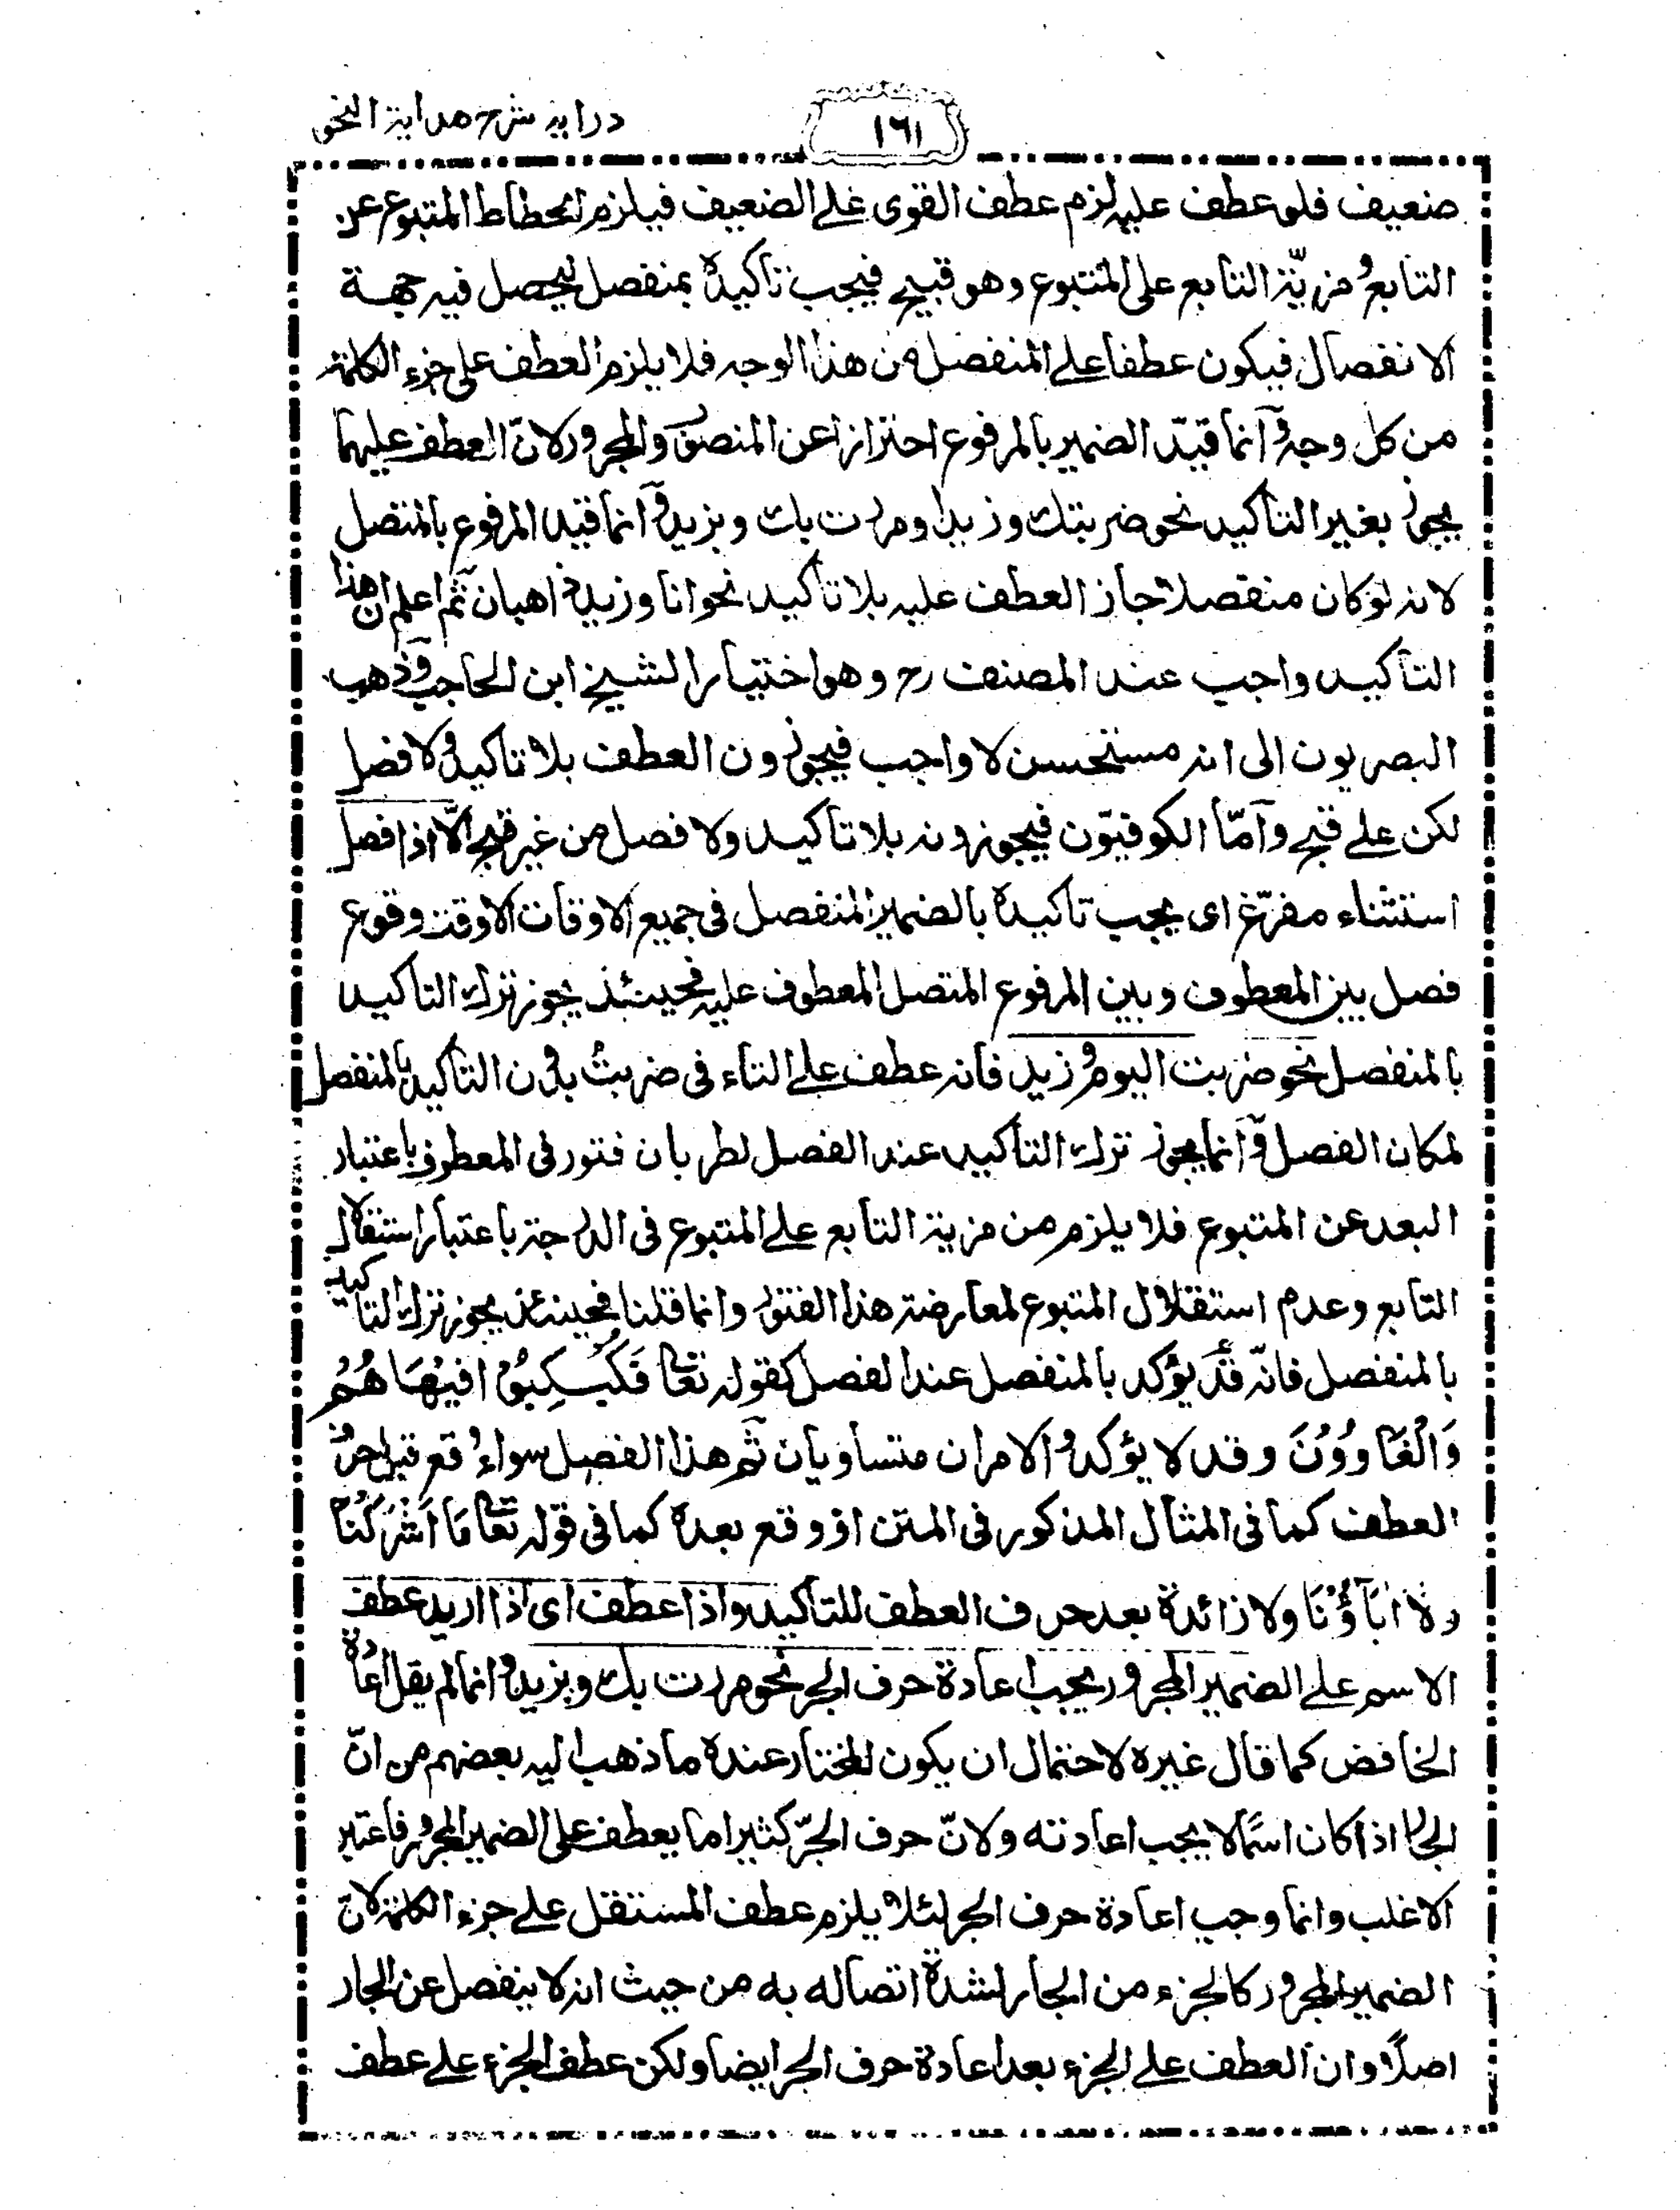 درايه شرح هداية النحو
١٦١
ضعيف فلو عطف عليه لزم عطف القوى على الضعيف فيلزم انحطاط المتبوع عن
التابع و مزيّة التابع على المتبوع وهو قبيح فيجب تأكيده بمنفصل ليحصل فيه جهة
الانفصال فيكون عطفا على المنفصل من هذا الوجه فلا يلزم العطف على جزء الكلمة
من كل وجه و انما قيّد الضمير بالمرفوع احترازا عن المنصوب والمجرور لانّ العطف عليهما
يجوز بغير التأكيد نحو ضربتك وزيدا ومررت بك وبزيد و انما قيد المرفوع بالمتصل
لانه لو كان منفصلا جاز العطف عليه بلا تأكيد نحو انا وزيد ذاهبان ثم اعلم ان هذا
التأكيد واجب عند المصنف رح وهو اختيار الشيخ ابن الحاجب وذهب
البصريون الى انه مستحسن لا واجب فيجوزون العطف بلا تاكيد ولا فصل
لكن على قبح وامّا الكوفيّون فيجوزونه بلا تاكيد ولا فصل من غير قبح الّا اذا فصل
استثناء مفرّغ اى يجب تاكيده بالضمير المنفصل فى جميع الاوقات الا وقت وقوع
فصل بين المعطوف وبين المرفوع المتصل المعطوف عليه فحينئذ يجوز ترك التاكيد
بالمنفصل نحو ضربت اليوم و زيد فانه عطف على التاء فى ضربتُ بدون التأكيد بالمنفصل
لمكان الفصل و انما يجوز ترك التأكيد عند الفصل لطريان فتور فى المعطوف باعتبار
البعد عن المتبوع فلا يلزم من مزية التابع على المتبوع فى الدرجة باعتبار استقلال
التابع وعدم استقلال المتبوع لمعارضة هذا الفتور وانما قلنا فحينئذ يجوز ترك التاكيد
بالمنفصل فانّه قد يؤكد بالمنفصل عند الفصل كقوله تعا فَكُبْكِبُوْا فِيْهَا هُمْ
وَالْغَاوُوْنَ وقد لا يؤكد و الامران متساويان ثم هذا الفصل سواء وقع قبل حرف
العطف كما فى المثال المذكور فى المتن او وقع بعده كما فى قوله تعا مَا اَشْرَكْنَا
وَلَا اٰبَآؤُنَا ولا زائدة بعد حرف العطف للتاكيد واذا عطف اى اذا اريد عطف
الاسم على الضمير المجرور يجب اعادة حرف الجر نحو مررت بك وبزيد و انما لم يقل اعادة
الخافض كما قال غيره لاحتمال ان يكون المختار عنده ما ذهب اليه بعضهم من انّ
الجار اذا كان اسمًا لا يجب اعادته ولانّ حرف الجرّ كثيرا ما يعطف على الضمير المجرور فاعتبر
الاغلب وانما وجب اعادة حرف الجر لئلا يلزم عطف المستقل على جزء الكلمة لانّ
الضمير المجرور كالجزء من الجار لشدة اتصاله به من حيث انه لا ينفصل عن الجار
اصلًا وان العطف على الجزء بعد اعادة حرف الجر ايضا ولكن عطف الجزء على عطف